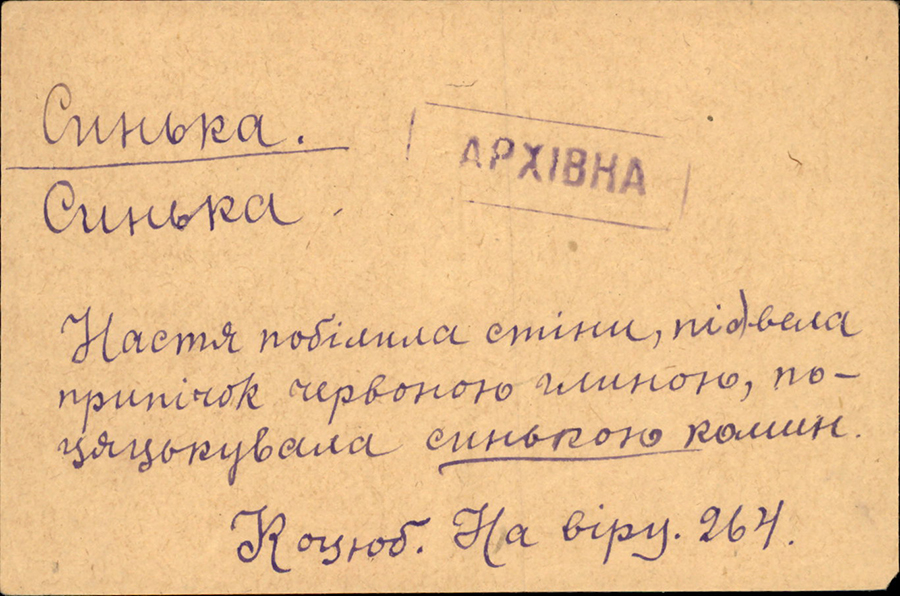 Синька.
АРХІВНА
Синька
Настя побілила стіни, підвела
припічок червоною глиною, по-
цяцькувала синькою комин.
Коцюб. На віру. 264.